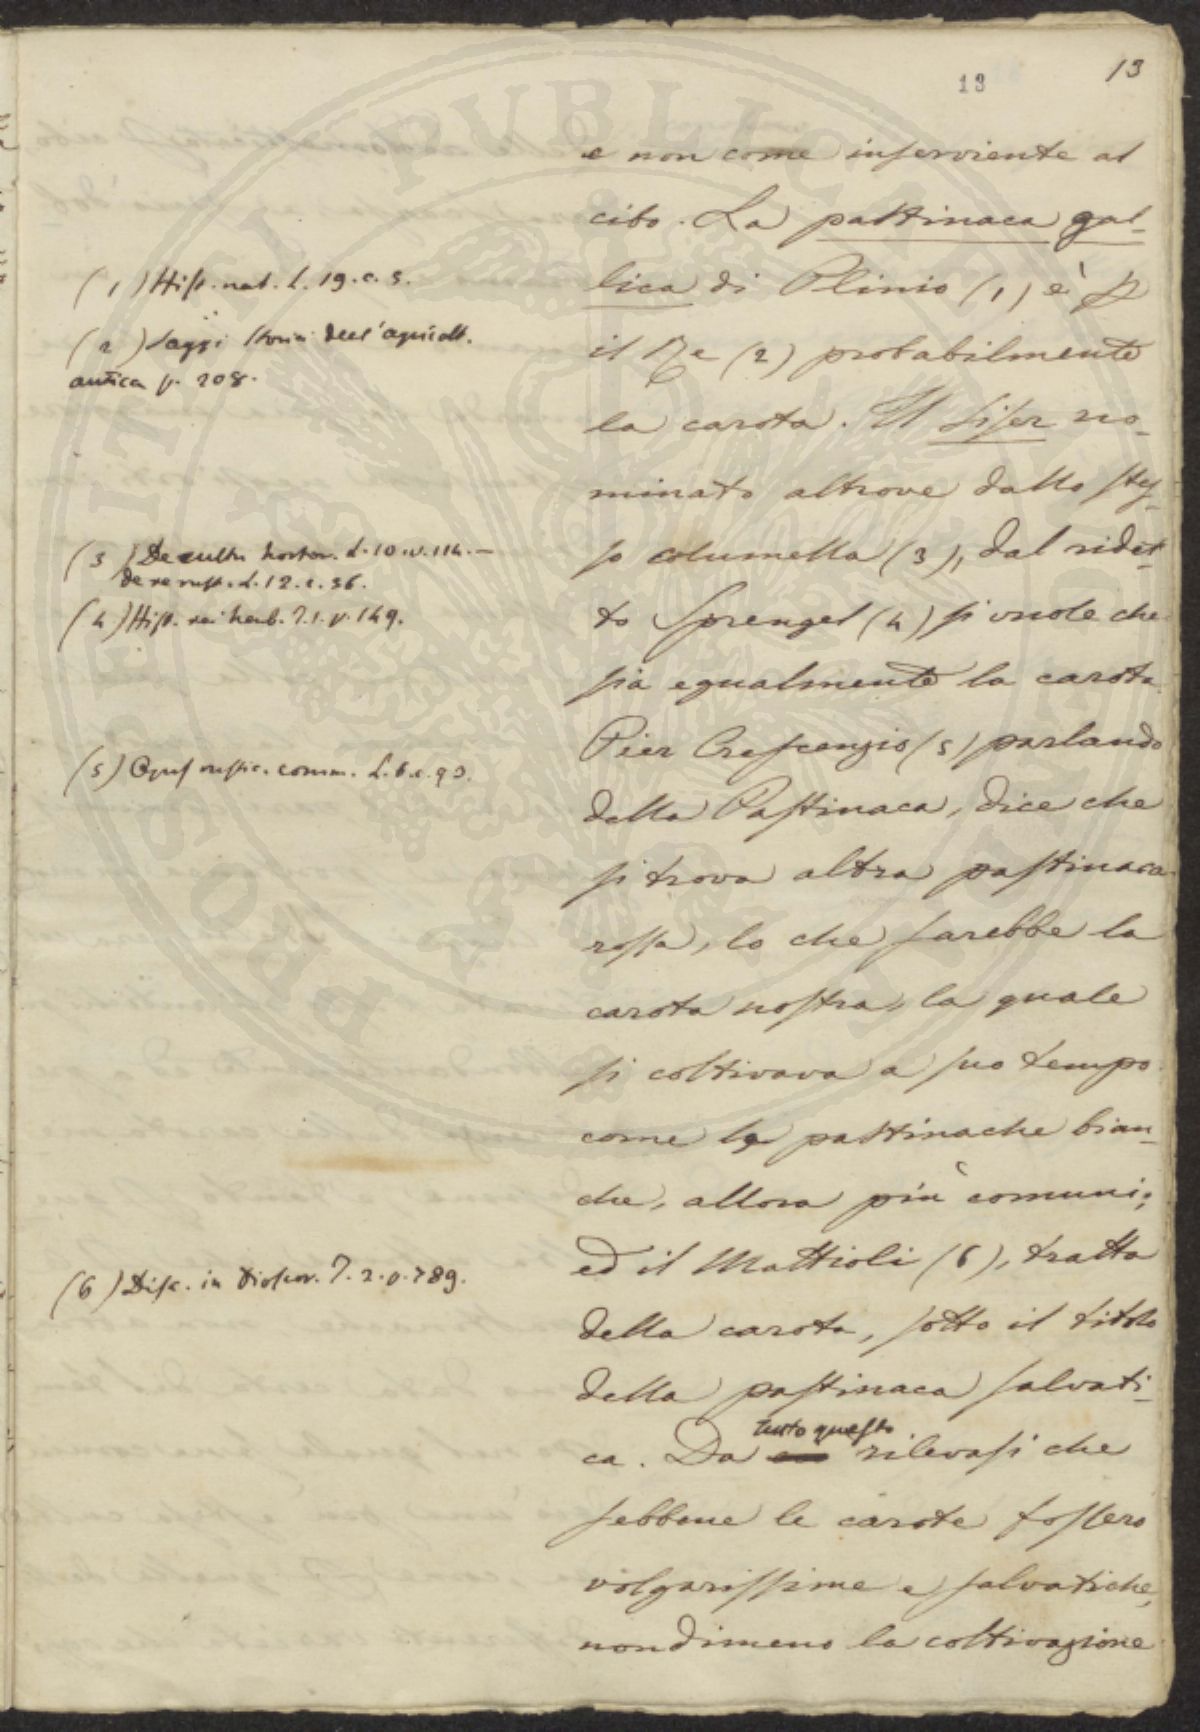 13
13
e non come inserviente al
cibo. La pastinaca gal-
lica di Plinio (1) è p
il Re (2) probabilmente
la carota. Il siser no-
minato altrove dallo stes-
so columella (3), dal ridet-
to Sprengel (4) si vuole che
sia egualmente la carota.
Pier Crescenzio (5) parlando
della Pastinaca, dice che
si trova altra pastinaca
rossa, lo che sarebbe la
carota nostra, la quale
si coltivava a suo tempo
come le pastinache bian-
che, allora più comuni;
ed il Mattioli (6), tratta
della carota, sotto il titolo
della pastinaca salvati-
ca. Da tutto questo rilevasi che
sebbene le carote fossero
volgarissime e salvatiche,
nondimeno la coltivazione
(1) Hist. nat. L. 19. c. 5.
(2) Saggi storia dell'agricolt.
antica p. 208.
(3) De cultu hortor. L. 10. v. 114. –
de re rust. L. 12. c. 56.
(4) Hist. rei herb. T. 1. p. 149.
(5) Opus rustic. comm. L. 6. c. 90.
(6) Disc. in Dioscor. T. 2. p. 789.